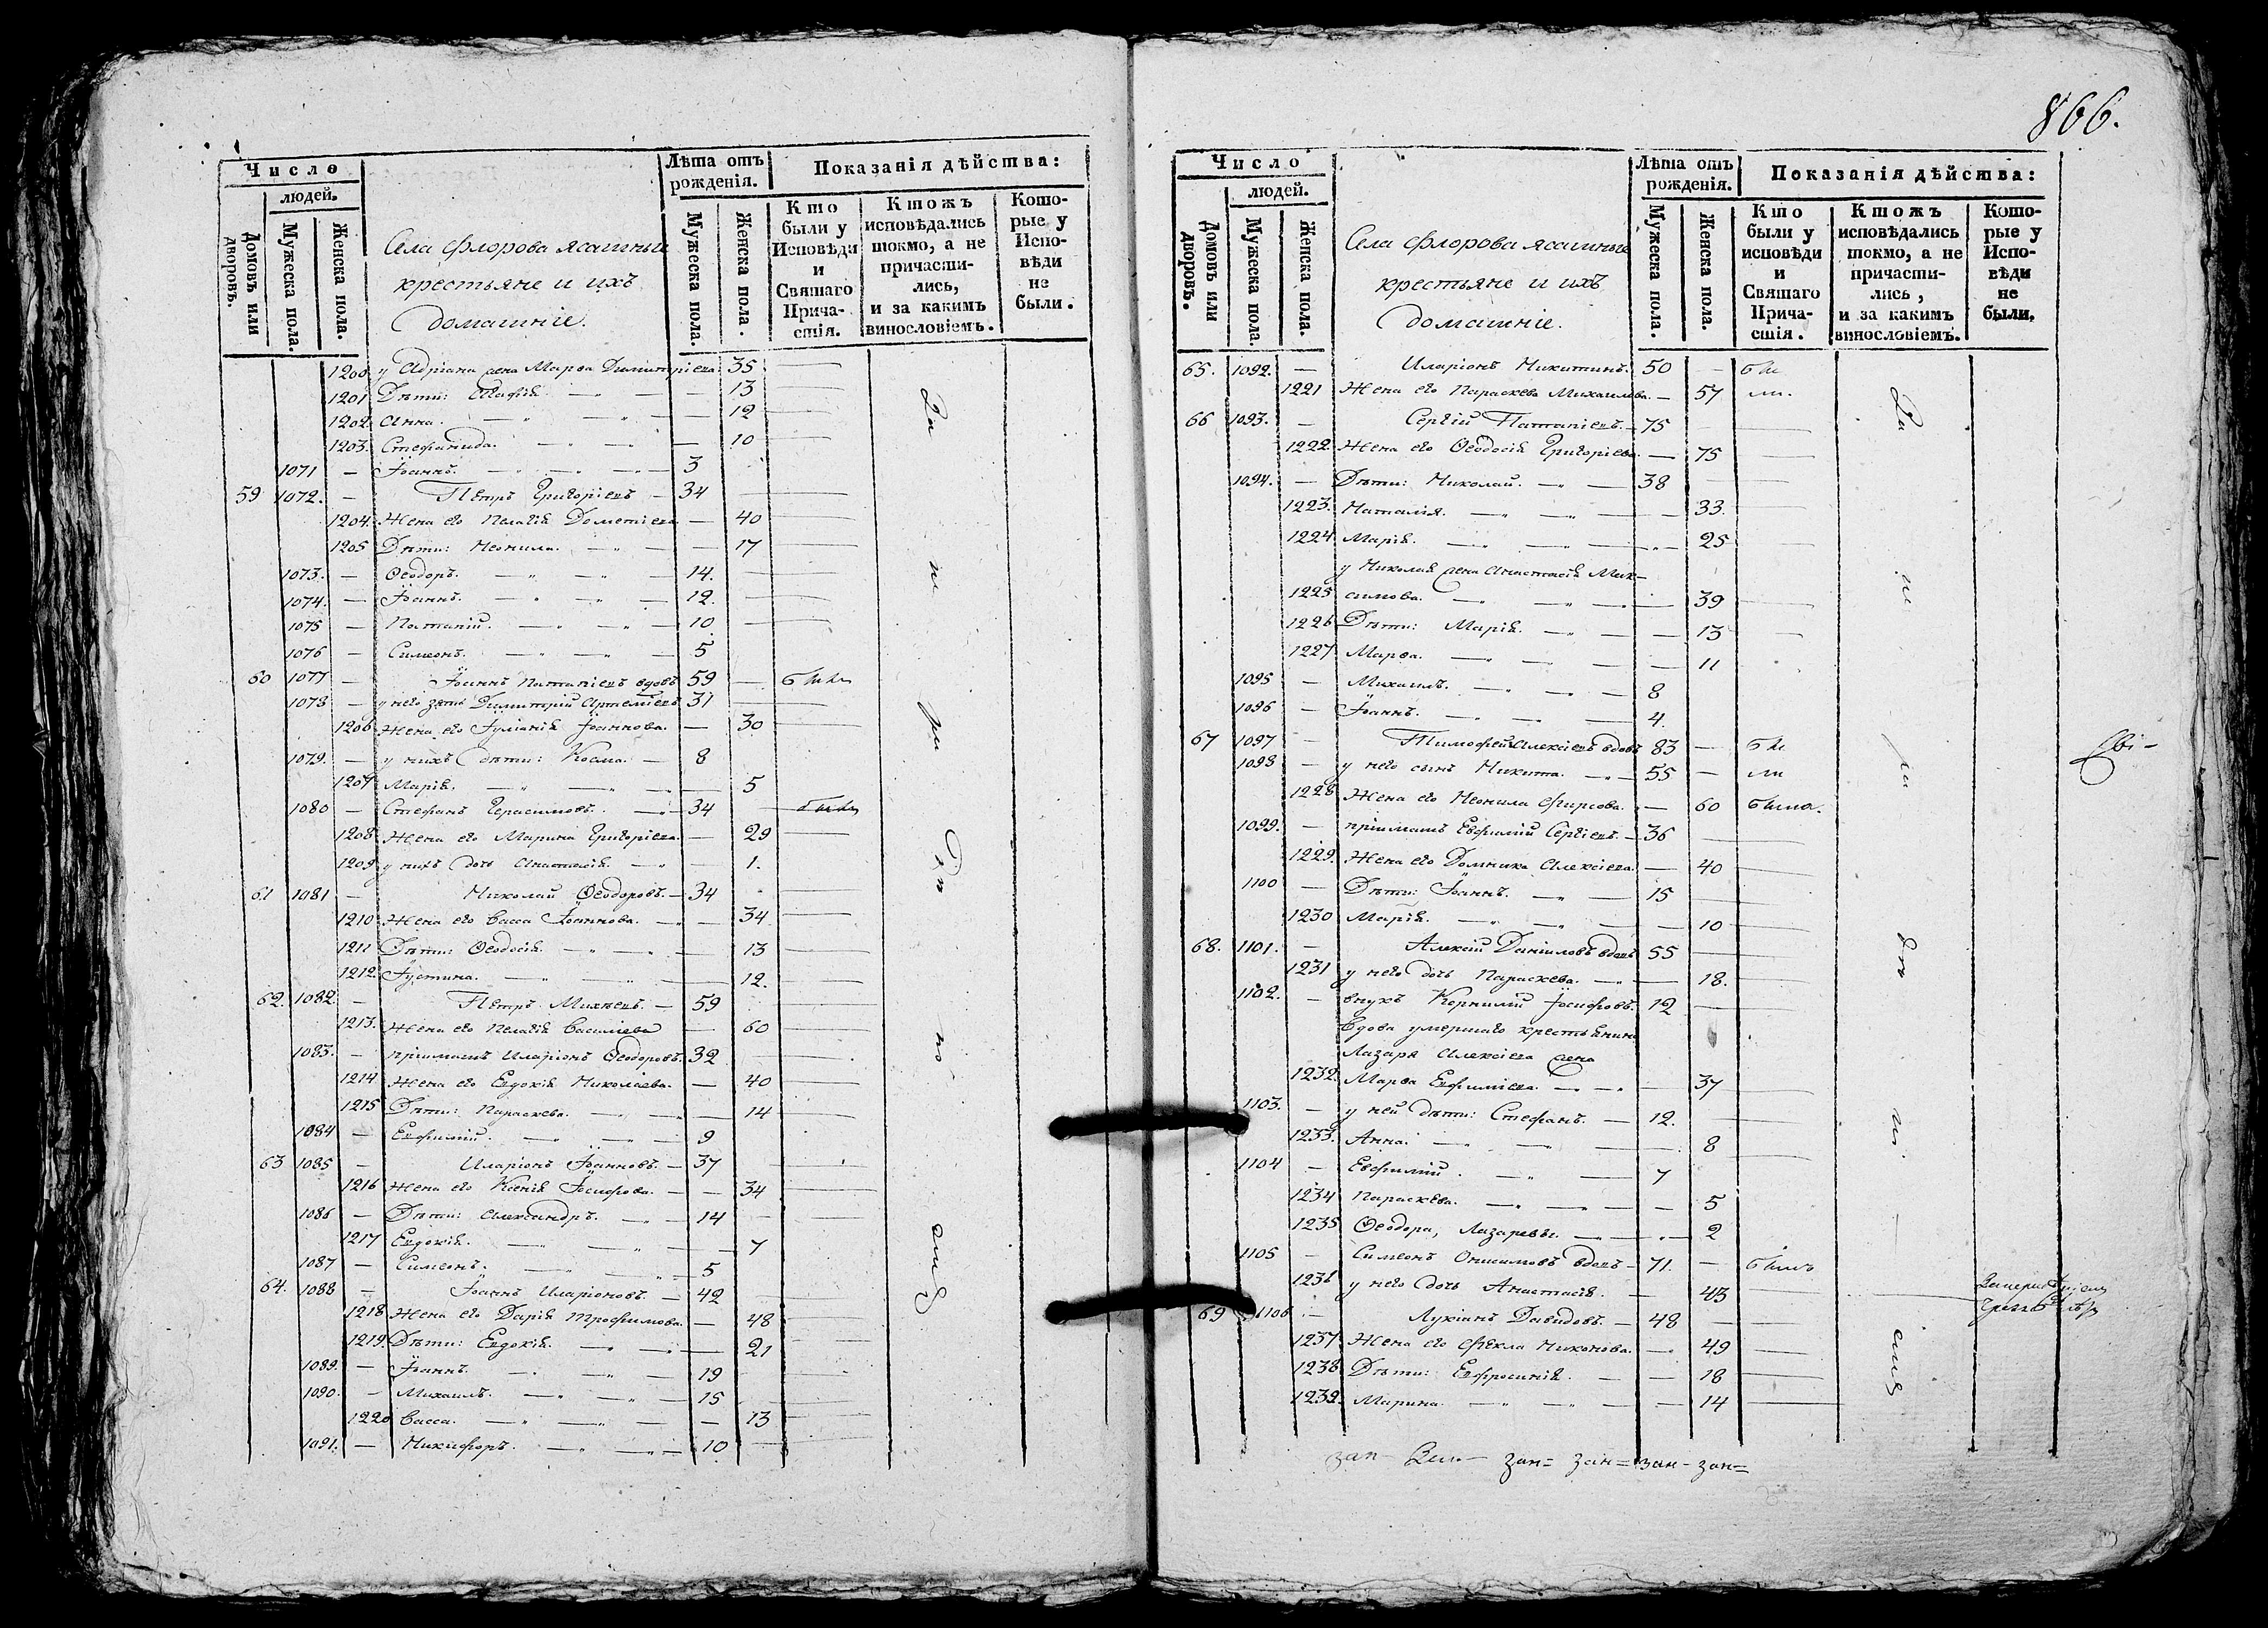 866.
Число
людей.
Домовъ или дворовъ.
Мужеска пола.
Женска пола.
Села Флорова ясашныя
крестьяне и ихъ
домашніе.
Лѣта отъ рожденія.
Мужеска пола.
Женска пола.
Показанія дѣйства:
Кто были у Исповѣди и Святаго Причастія.
Ктожъ исповѣдались токмо, а не причастились, и за какимъ винословіемъ.
Которые у Исповѣди не были.
1200. у Адріана жена Марѳа Димитріева. 35
1201 Дѣти: Софія. — — 13
1202. Анна. — — 12
1203. Стефанида. — — 10
1071 — Іоаннъ. — — 3
59 1072. — Петръ Григоріевъ — 34
1204. Жена его Пелагія Дометіева — 40
1205 Дѣти: Неонила. — — 17
1073. — Ѳеодоръ. — — 14.
1074. — Іоаннъ. — — 12.
1075 — Потапій. — — 10
1076 — Симеонъ. — — 5
60 1077 — Іоаннъ Потапіевъ вдовъ 59 — были
1078 — у него зять Димитрій Артеміевъ 31
1206 Жена его Іуліанія Іоаннова. — 30
1079. — у нихъ дѣти: Косма. — 8
1207 Марія. — — 5
1080 — Стефанъ Герасимовъ. — 34
1208 Жена его Марина Григоріева. — 29
1209 у нихъ дочь Анастасія. — — 1.
61 1081 — Николай Ѳеодоровъ. — 34
1210 Жена его Васса Іоаннова. — 34
1211 Дѣти: Ѳеодосія. — — 13
1212. Іустина. — — 12.
62. 1082. — Петръ Михѣевъ. — 59
1213. Жена его Пелагія Василіева — 60
1083. — пріимышъ Иларіонъ Ѳеодоровъ. 32
1214 Жена его Евдокія Николаева. — 40
1215 Дѣти: Параскева. — — 14
1084 — Евфимій. — — 9
63 1085 — Иларіонъ Іоанновъ. — 37
1216 Жена его Ксенія Іосифова. — — 34
1086 — Дѣти: Александръ. — 14
1217 Евдокія. — — 7
1087 — Симеонъ. — — 5
64. 1088 — Іоаннъ Иларіоновъ. — 42
1218 Жена его Дарія Трофимова. — 48
1219. Дѣти: Евдокія. — — 21
1089. — Іоаннъ. — — 19
1090. — Михаилъ. — — 15
1220 Васса. — — 13
1091. — Никифоръ. — — 10
Число
людей.
Домовъ или дворовъ.
Мужеска пола.
Женска пола.
Села Флорова ясашныя
крестьяне и ихъ
домашніе.
Лѣта отъ рожденія.
Мужеска пола.
Женска пола.
Показанія дѣйства:
Кто были у исповѣди и Святаго Причастія.
Ктожъ исповѣдались токмо, а не причастились, и за какимъ винословіемъ.
Которые у Исповѣди не были.
65. 1092. — Иларіонъ Никитинъ. 50 — бы
1221 Жена его Параскева Михаилова. — 57 ли.
66 1093. — Сергій Потапіевъ. — 75
1222 Жена его Ѳеодосія Григоріева. — 75
1094. — Дѣти: Николай. — — 38
1223. Наталія. — — 33.
1224 Марія. — — 25
у Николая жена Анастасія Мак-
1225 симова. — — 39
1226 Дѣти: Марія. — — 13
1227 Марѳа. — — 11
1095 — Михаилъ. — — 8
1096 — Іоаннъ. — — 4.
67 1097 — Тимофей Алексіевъ вдовъ 83 — бы
1098 — у него сынъ Никита. — 55 — ли
1228 Жена его Неонила Фирсова. — 60 была.
1099. — пріимышъ Евфимій Сергіевъ. — 36
1229. Жена его Домника Алексіева. — 40
1100 — Дѣти: Іоаннъ. — — 15
1230 Марія. — — 10
68. 1101. — Алексій Даніиловъ вдовъ 55
1231 у него дочь Параскева. — 18.
1102. — внукъ Корнилій Іосифовъ. 12
Вдова умершаго крестьянина
Лазаря Алексіева жена
1232. Марѳа Евфиміева. — — 37
1103. — у ней дѣти: Стефанъ. — 12.
1233. Анна. — — 8
1104 — Евфимій. — — 7
1234 Параскева. — — 5
1235 Ѳеодора, Лазаревы. — — 2
1105 — Симеонъ Онисимовъ вдовъ — 71. — былъ
1236 у него дочь Анастасія. — 43
69 1106 — Лукіанъ Давидовъ. — 48
1237 Жена его Фекла Никонова. — 49
1238 Дѣти: Евфросинія. — — 18
1239. Марина. — — 14